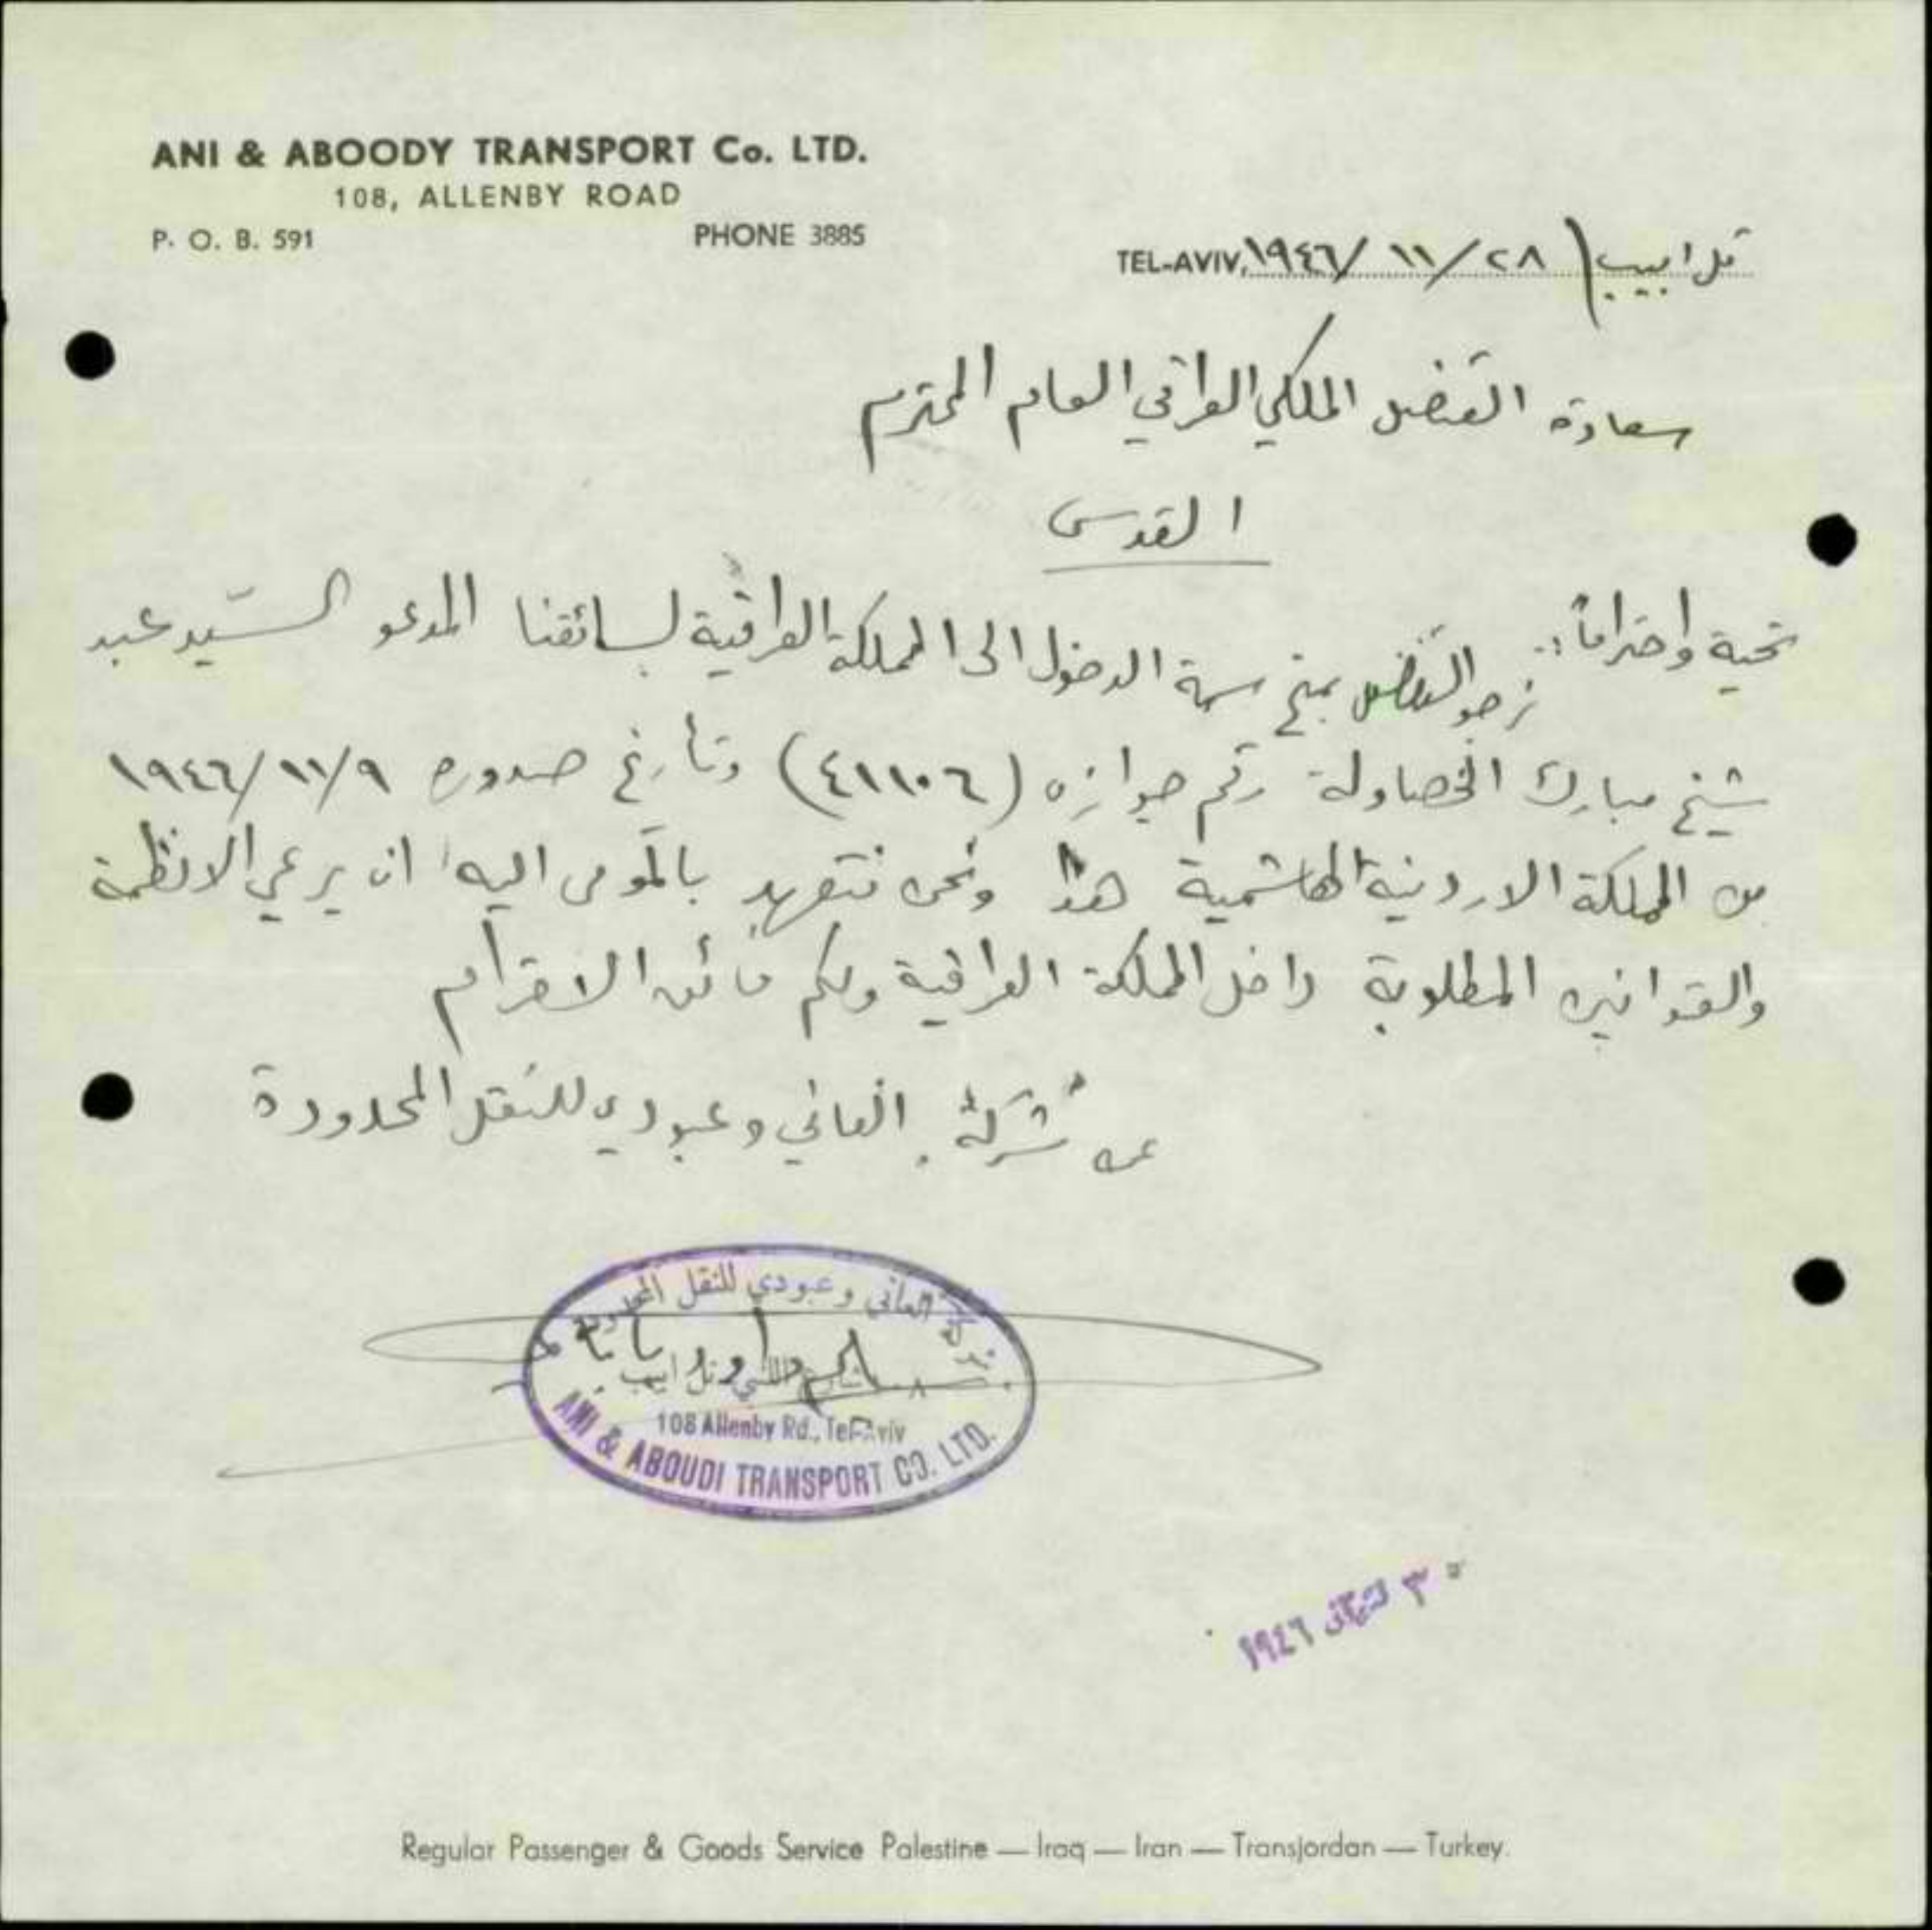 ANI & ABOODY TRANSPORT Co. LTD.
108, ALLENBY ROAD
P. O. B. 591 PHONE 3885
TEL-AVIV, تل ابيب ٢٨ / ١١ / ١٩٤٦
سعادة القنصل الملكي العراقي العام المحترم
القدس
تحية واحتراماً:
نرجو التفضل بمنح سمة الدخول الى المملكة العراقية لسائقنا المدعو السيد عبد
شيخ مبارك الخصاولة رقم جوازه (٤١١٠٦) وتأريخ صدوره ١٩٤٦/١١/٩
من المملكة الاردنية الهاشمية هذا ونحن نتعهد بالمومى اليه ان يرعي الانظمة
والقوانين المطلوبة داخل المملكة العراقية ولكم فائق الاحترام
عن شركة العاني وعبودي للنقل المحدودة
شركة العاني وعبودي للنقل المحدودة
تل ابيب
108 Allenby Rd., Tel-Aviv
ANI & ABOUDI TRANSPORT CO. LTD.
٣٠ ١٩٤٦
Regular Passenger & Goods Service Palestine — Iraq — Iran — Transjordan — Turkey.